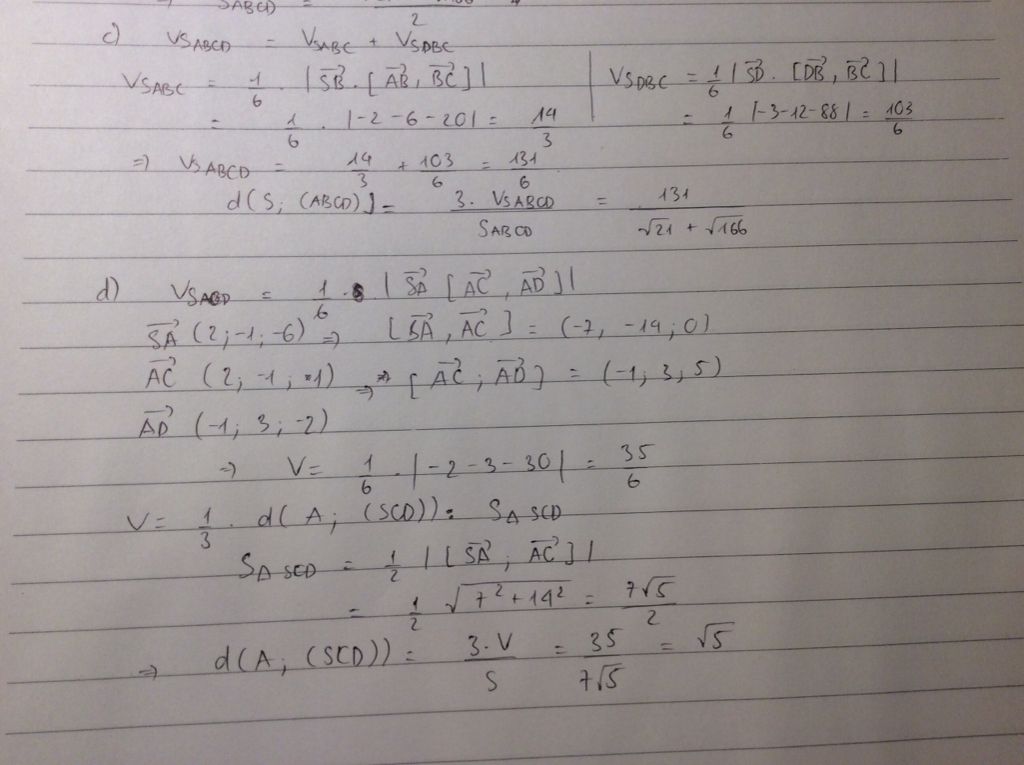 ⇒ S_ABCD = 2
c) V_SABCD = V_SABC + V_SDBC
V_SABC = 1/6 · |SB→ · [AB→, BC→]| | V_SDBC = 1/6 |SD→ · [DB→, BC→]|
= 1/6 · |-2 - 6 - 20| = 14/3 = 1/6 |-3-12-88| = 103/6
⇒ V_SABCD = 14/3 + 103/6 = 131/6
d(S; (ABCD)] = 3. V_SABCD / S_ABCD = 131 / √21 + √166
d) V_SACD = 1/6 · |SA→ [AC→, AD→]|
SA→ (2; -1; -6) ⇒ [SA→, AC→] = (-7, -14; 0)
AC→ (2; -1; -1) ⇒ [AC→; AD→] = (-1; 3; 5)
AD→ (-1; 3; -2)
⇒ V = 1/6 · |-2 - 3 - 30| = 35/6
V = 1/3 · d(A; (SCD)) · S_Δ SCD
S_Δ SCD = 1/2 |[SA→; AC→]|
= 1/2 √7² + 14² = 7√5/2
⇒ d(A; (SCD)) = 3.V/S = 35/7√5 = √5